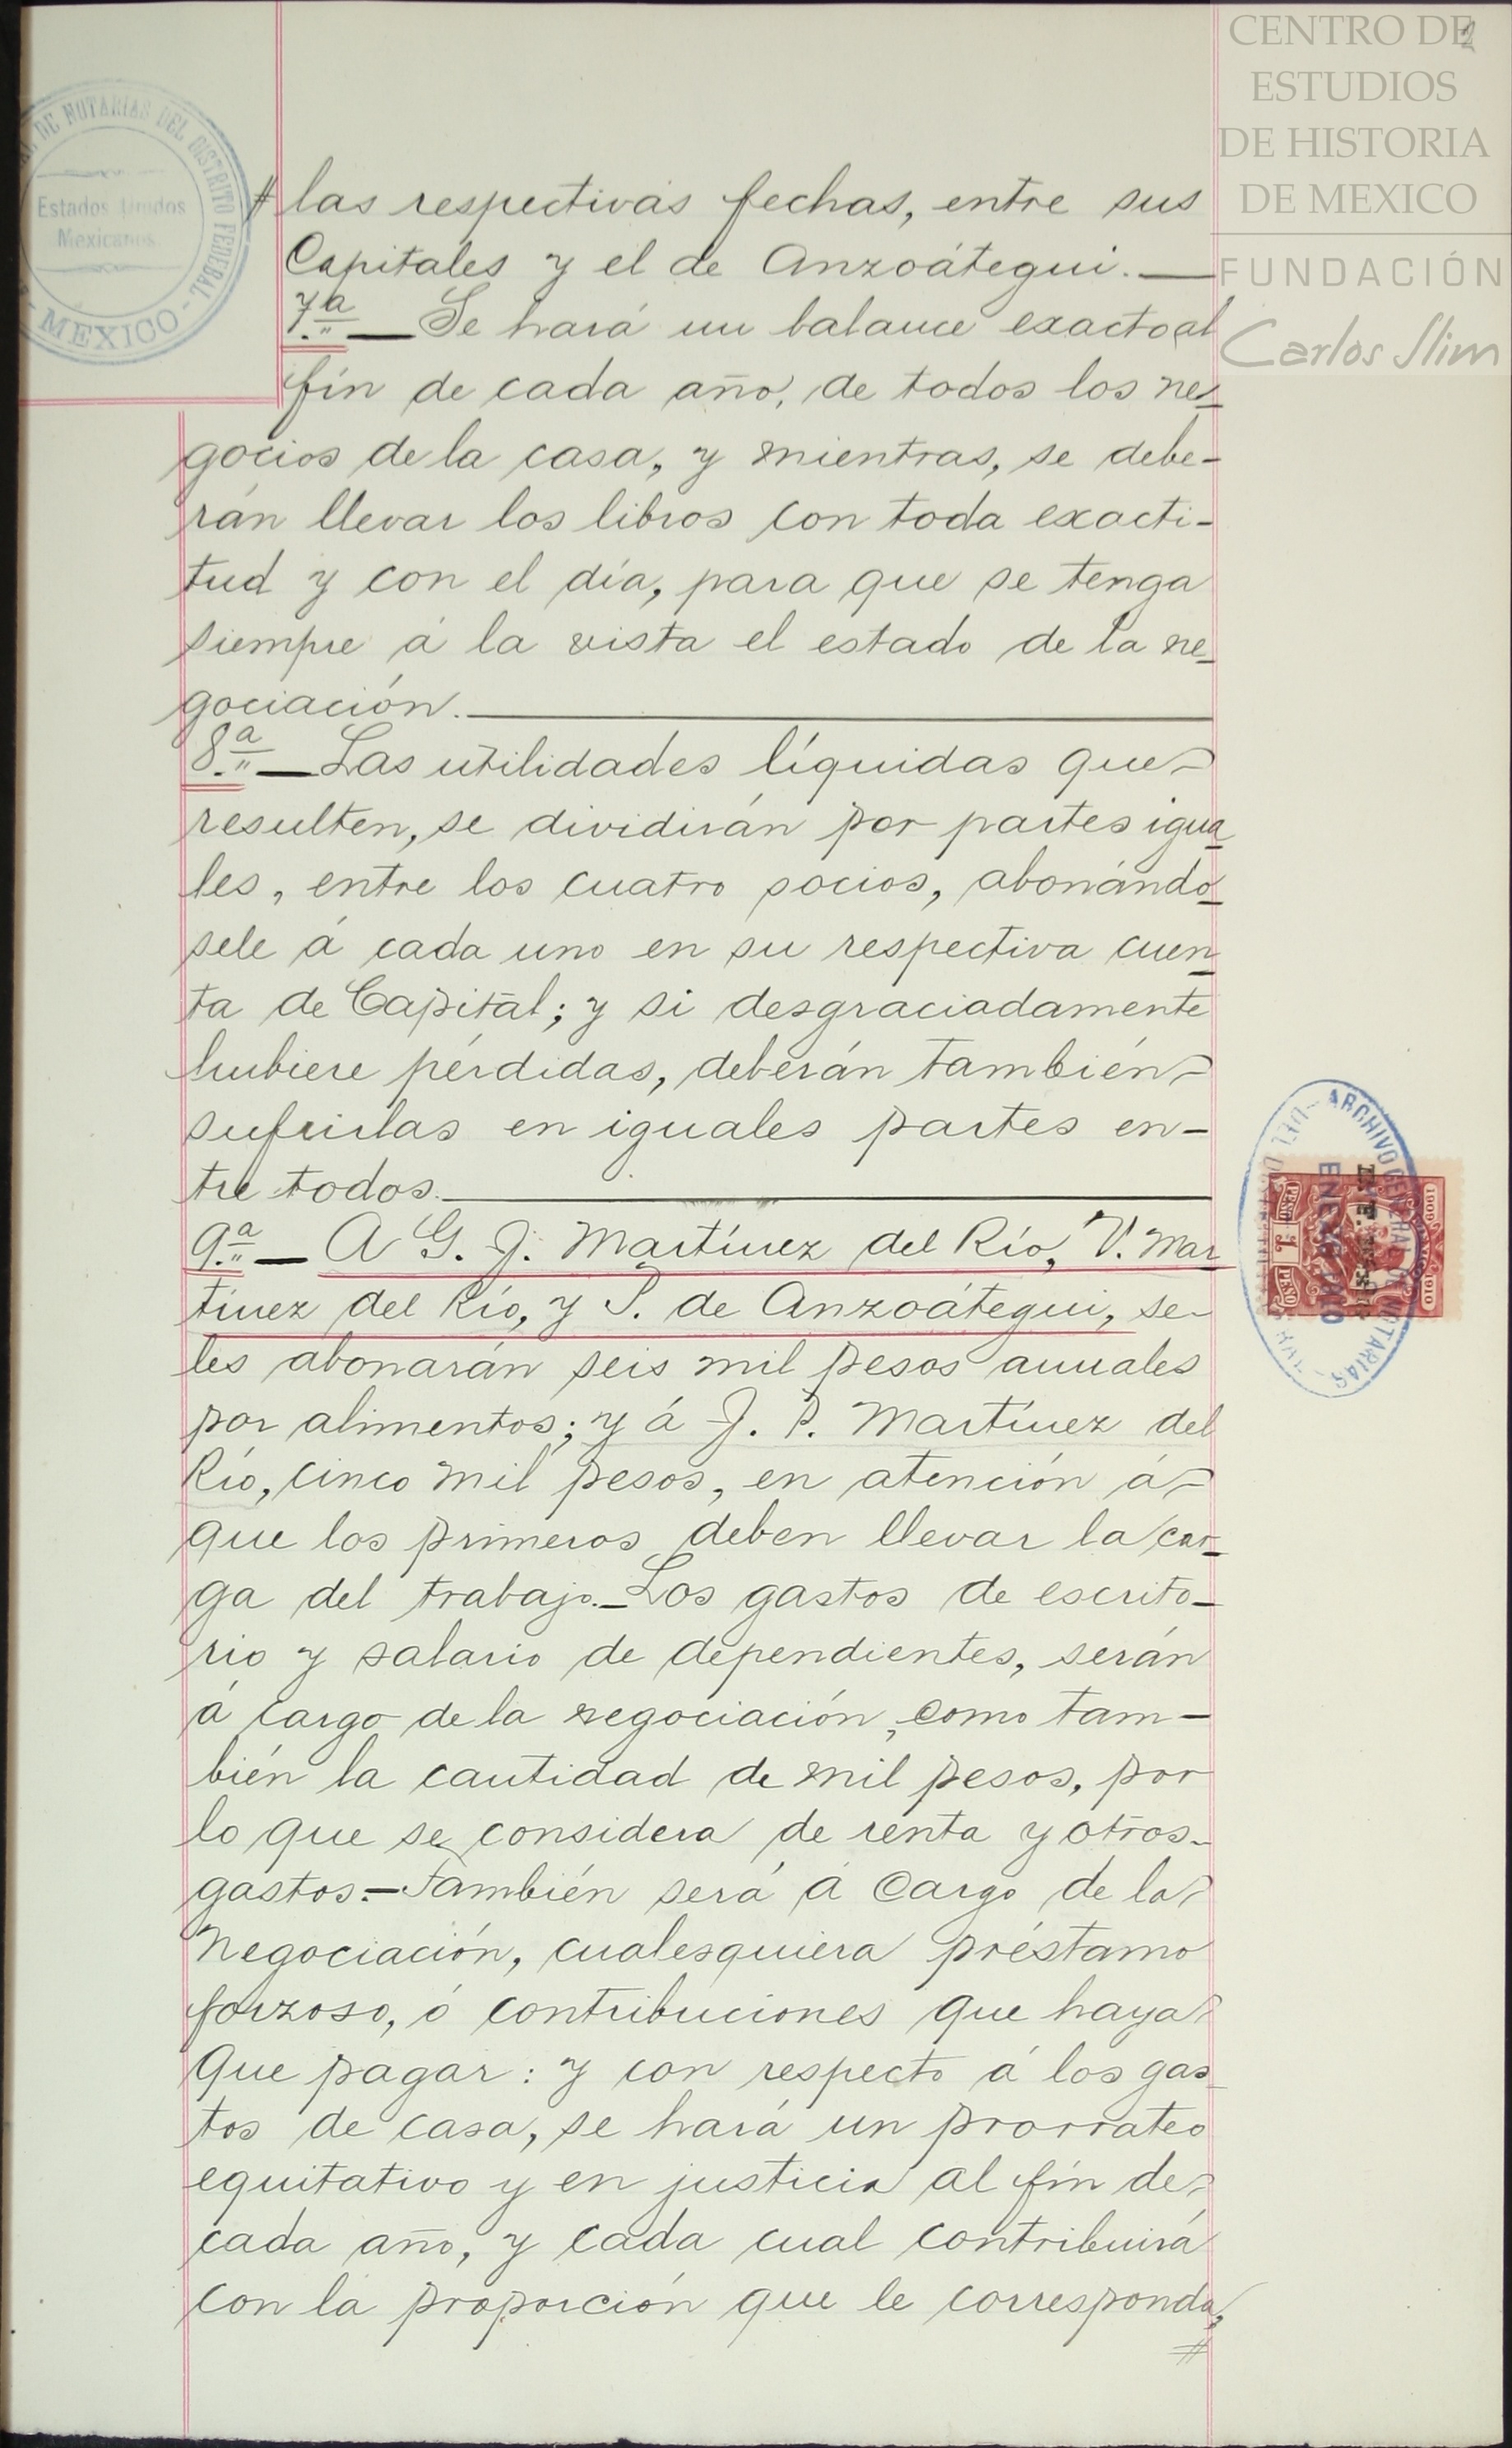 CENTRO DE
ESTUDIOS
DE HISTORIA
DE MEXICO
FUNDACIÓN
Carlos Slim
DE NOTARIAS DEL DISTRITO FEDERAL
Estados Unidos
Mexicanos.
- MEXICO -
# las respectivas fechas, entre sus
Capitales y el de Anzoátegui. —
7.ª — Se hará un balance exacto al
fin de cada año, de todos los ne-
gocios de la casa, y mientras, se debe-
rán llevar los libros con toda exacti-
tud y con el día, para que se tenga
siempre á la vista el estado de la ne-
gociación. —
8.ª — Las utilidades líquidas que
resulten, se dividirán por partes igua
les, entre los cuatro socios, abonándo-
sele á cada uno en su respectiva cuen-
ta de Capital; y si desgraciadamente
hubiere pérdidas, deberán también
sufrirlas en iguales partes en-
tre todos. —
9.ª — A G. J. Martínez del Río, V. Mar
tínez del Río, y P. de Anzoátegui, se
les abonarán seis mil pesos anuales
por alimentos; y á J. P. Martínez del
Río, cinco mil pesos, en atención á
que los primeros deben llevar la car-
ga del trabajo. — Los gastos de escrito-
rio y salario de dependientes, serán
á cargo de la negociación, como tam-
bién la cantidad de mil pesos, por
lo que se considera de renta y otros
gastos. — También será á cargo de la
negociación, cualesquiera préstamo
forzoso, ó contribuciones que haya
que pagar: y con respecto á los gas-
tos de casa, se hará un prorrateo
equitativo y en justicia al fin de
cada año, y cada cual contribuirá
con la proporción que le corresponda,
#
ARCHIVO GENERAL DE NOTARIAS
1909 1910
PESO 1 PESO